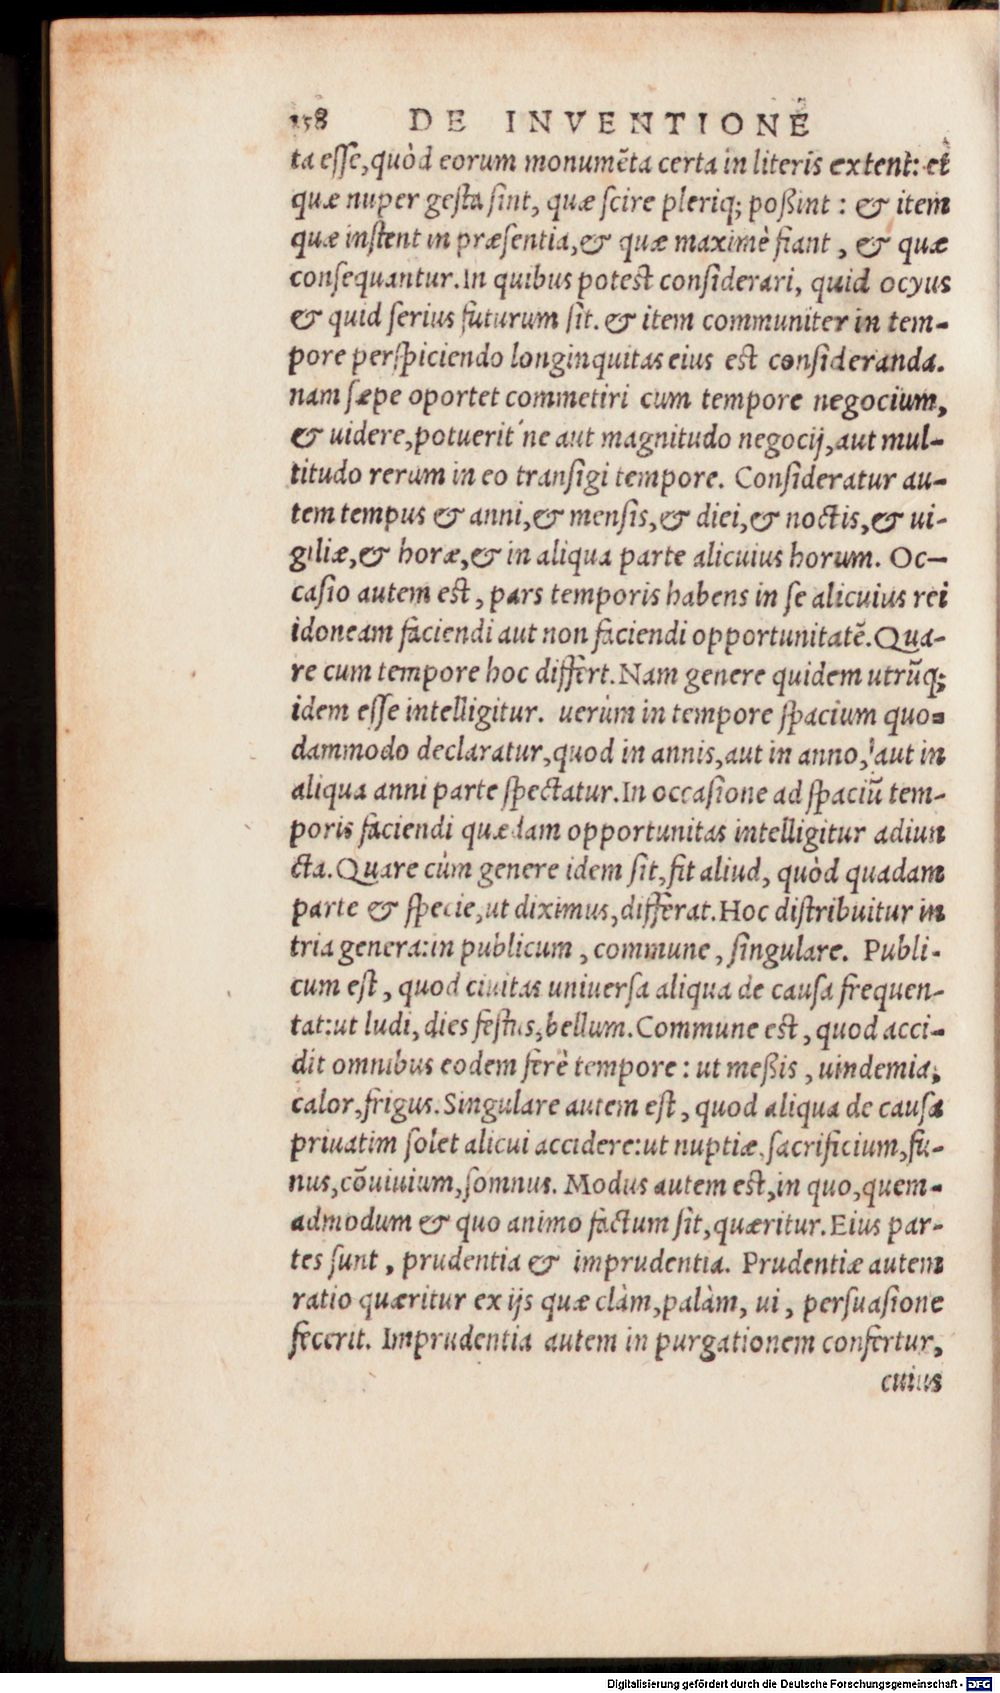 158 DE INVENTIONE
ta esse, quòd eorum monumẽta certa in literis extent: et
quæ nuper gesta sint, quæ scire pleriq; poßint : & item
quæ instent in præsentia, & quæ maximè fiant , & quæ
consequantur. In quibus potest considerari, quid ocyus
& quid serius futurum sit. & item communiter in tem-
pore perspiciendo longinquitas eius est consideranda.
nam sæpe oportet commetiri cum tempore negocium,
& uidere, potuerit'ne aut magnitudo negocij, aut mul-
titudo rerum in eo transigi tempore. Consideratur au-
tem tempus & anni, & mensis, & diei, & noctis, & ui-
giliæ, & horæ, & in aliqua parte alicuius horum. Oc-
casio autem est, pars temporis habens in se alicuius rei
idoneam faciendi aut non faciendi opportunitatẽ. Qua-
re cum tempore hoc differt. Nam genere quidem utrũq;
idem esse intelligitur. uerùm in tempore spacium quo-
dammodo declaratur, quod in annis, aut in anno, aut in
aliqua anni parte spectatur. In occasione ad spaciũ tem-
poris faciendi quædam opportunitas intelligitur adiun
cta. Quare cùm genere idem sit, fit aliud, quòd quadam
parte & specie, ut diximus, differat. Hoc distribuitur in
tria genera: in publicum , commune , singulare. Publi-
cum est , quod ciuitas uniuersa aliqua de causa frequen-
tat: ut ludi, dies festus, bellum. Commune est , quod acci-
dit omnibus eodem ferè tempore : ut meßis , uindemia,
calor, frigus. Singulare autem est , quod aliqua de causa
priuatim solet alicui accidere: ut nuptiæ, sacrificium, fu-
nus, cõuiuium, somnus. Modus autem est, in quo, quem-
admodum & quo animo factum sit, quæritur. Eius par-
tes sunt , prudentia & imprudentia. Prudentiæ autem
ratio quæritur ex ijs quæ clàm, palàm, ui , persuasione
fecerit. Imprudentia autem in purgationem confertur,
cuius
Digitalisierung gefördert durch die Deutsche Forschungsgemeinschaft - DFG